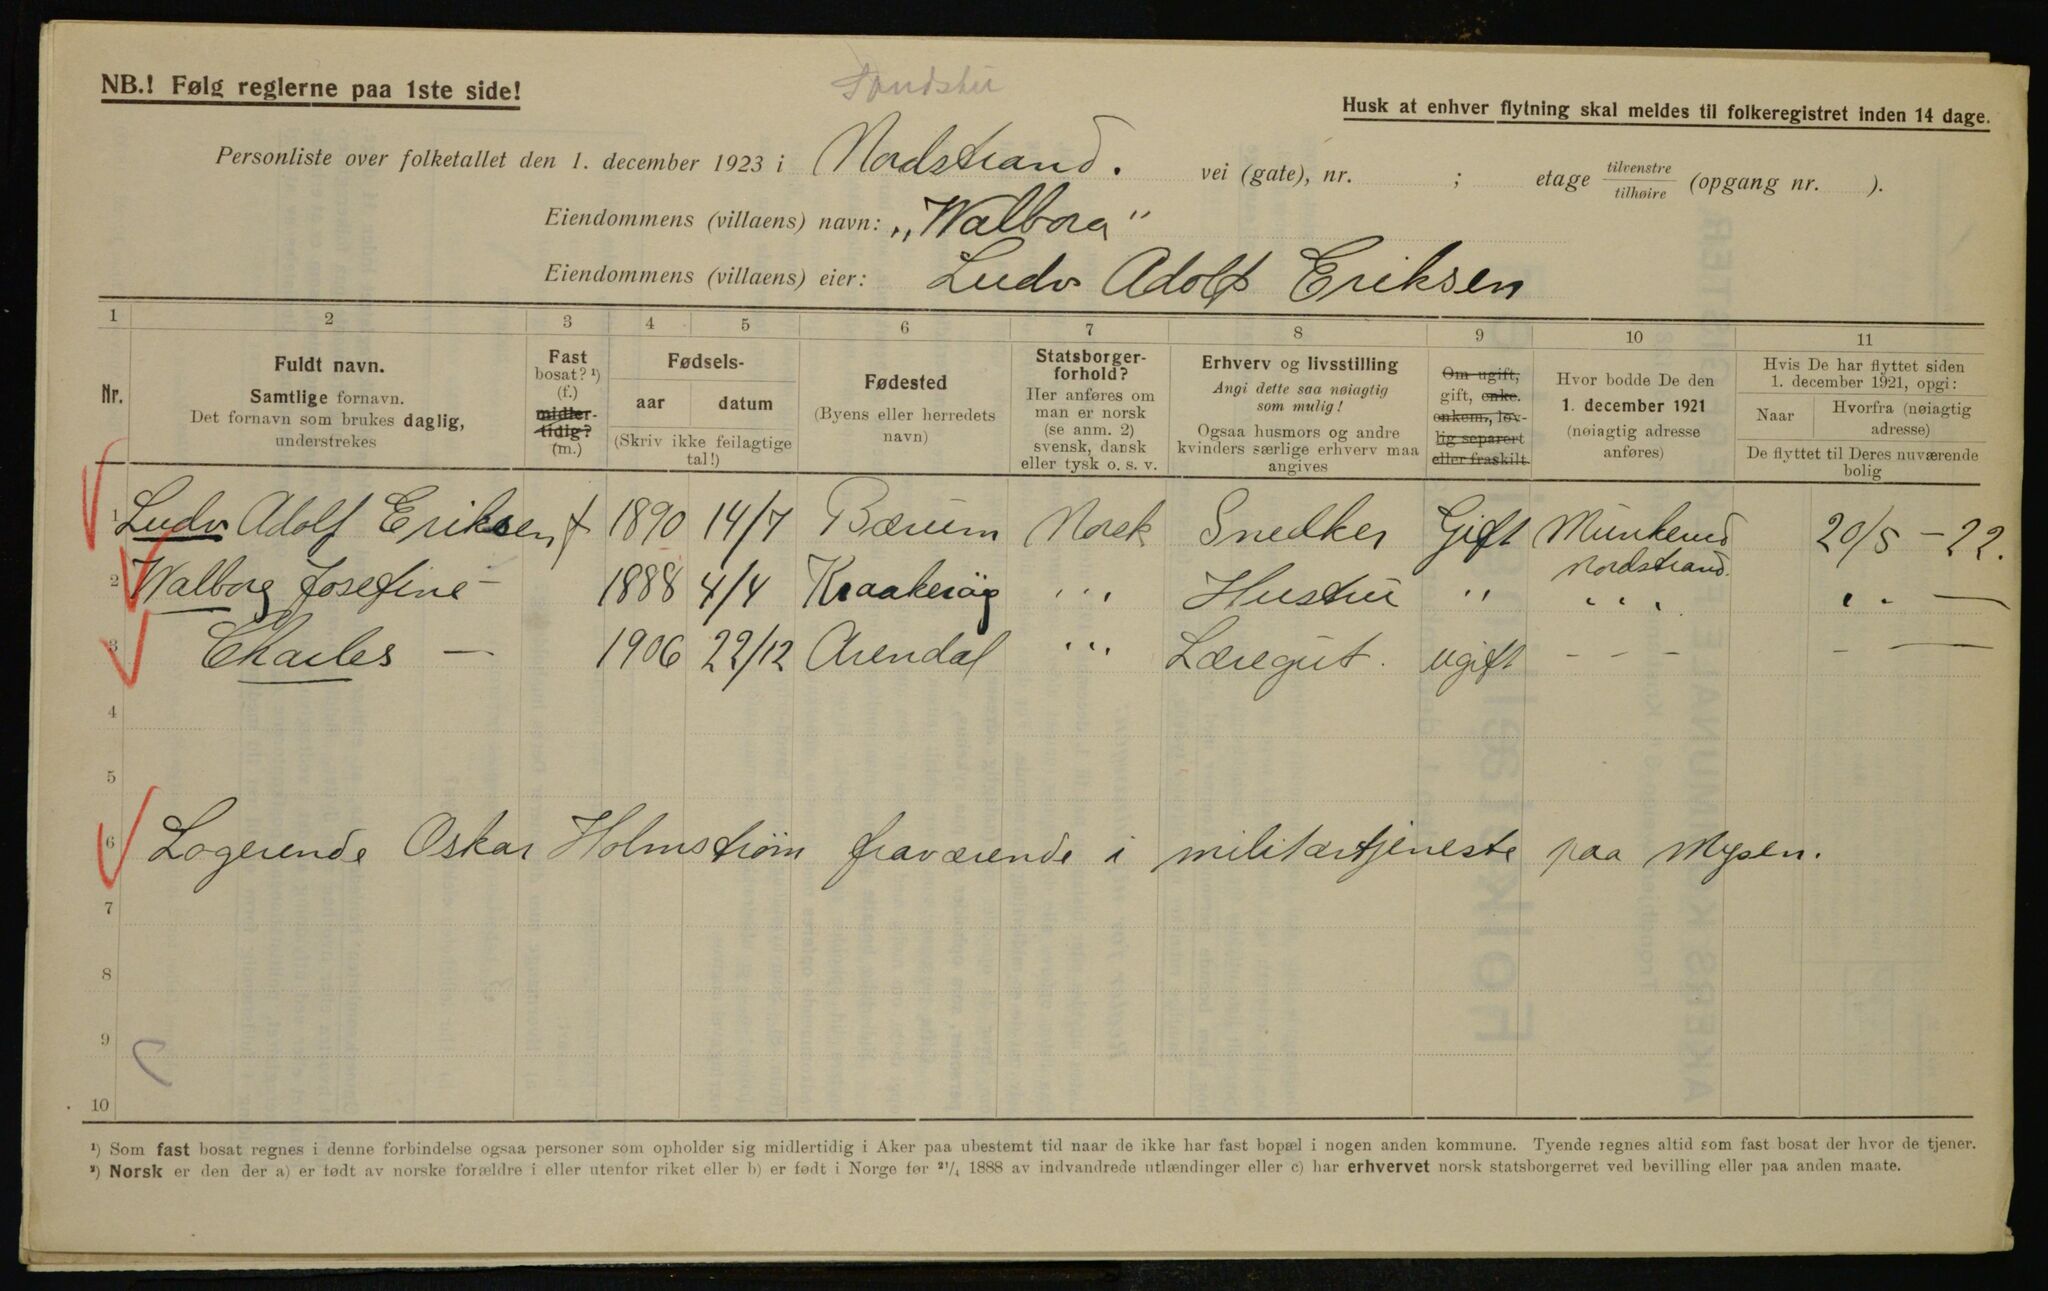 NB.! Følg reglerne paa 1ste side!
Husk at enhver flytning skal meldes til folkeregistret inden 14 dage.
Personliste over folketallet den 1. december 1923 i Nordstrand. vei (gate), nr. ; etage tilvenstre / tilhøire (opgang nr. ).
Eiendommens (villaens) navn: „Walborg"
Eiendommens (villaens) eier: Ludv Adolf Eriksen
1 2 3 4 5 6 7 8 9 10 11
Nr.
Fuldt navn.
Samtlige fornavn.
Det fornavn som brukes daglig,
understrekes
Fast
bosat? ¹)
(f.)
midler-
tidig?
(m.)
Fødsels-
aar datum
(Skriv ikke feilagtige
tal!)
Fødested
(Byens eller herredets
navn)
Statsborger-
forhold?
Her anføres om
man er norsk
(se anm. 2)
svensk, dansk
eller tysk o. s. v.
Erhverv og livsstilling
Angi dette saa nøiagtig
som mulig!
Ogsaa husmors og andre
kvinders særlige erhverv maa
angives
Om ugift,
gift, enke.
enkem., lov-
lig separert
eller fraskilt.
Hvor bodde De den
1. december 1921
(nøiagtig adresse
anføres)
Hvis De har flyttet siden
1. december 1921, opgi:
Naar Hvorfra (nøiagtig
adresse)
De flyttet til Deres nuværende
bolig
1 Ludv Adolf Eriksen f 1890 14/7 Bærum Norsk Snedker Gift Munkerud 20/5 - 22.
Nordstrand.
2 Walborg Josefine - 1888 4/4 Kraakerøy " Hustru " " " " —
3 Charles — 1906 22/12 Arendal " Læregut. ugift - - - - —
4
5
6 Logerende Oskar Holmstrøm fraværende i militærtjeneste paa Mysen.
7
8
9
10
¹) Som fast bosat regnes i denne forbindelse ogsaa personer som opholder sig midlertidig i Aker paa ubestemt tid naar de ikke har fast bopæl i nogen anden kommune. Tyende regnes altid som fast bosat der hvor de tjener.
²) Norsk er den der a) er født av norske forældre i eller utenfor riket eller b) er født i Norge før ²¹/₄ 1888 av indvandrede utlændinger eller c) har erhvervet norsk statsborgerret ved bevilling eller paa anden maate.